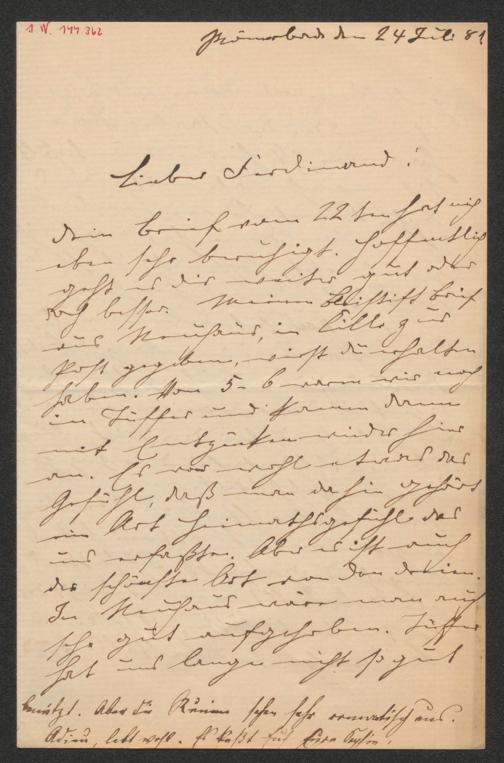 I. N. 144.362
Römerbad den 24 Juli 81
Lieber Ferdinand!
Dein Brief vom 22ten hat mich
eben sehr beruhigt. Hoffentlich
geht es dir weiter gut oder
noch besser. Meinen Bleistift Brief
aus Neuhaus, in Cilli zur
Post gegeben, wirst du erhalten
haben. Von 5-6 waren wir noch
in Tüffer und kamen dann
mit Entzücken wieder hier
an. Es war wohl etwas das
Gefühl, daß man dahin gehört
ein Art Heimathsgefühl das
uns erfaßte. Aber es ist auch
der schönste Ort von den dreien.
In Neuhaus wäre man auch
sehr gut aufgehoben. Tüffer
hat uns lange nicht so gut
benützt. Aber die Ruinen sehen sehr romantisch aus.
Adieu, lebt wohl. Es küßt Euch Eure